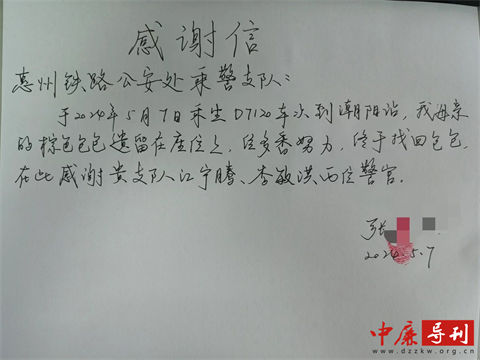 感谢信
惠州铁路公安处乘警支队:
于2024年5月7日乘坐D7120车次到潮阳站,我母亲
的棕色包包遗留在座位上,经多番努力,终于找回包包,
在此感谢贵支队江宇腾、李敏洪两位警官。
张
2024.5.7
中廉导刊
www.dzzkw.org.cn